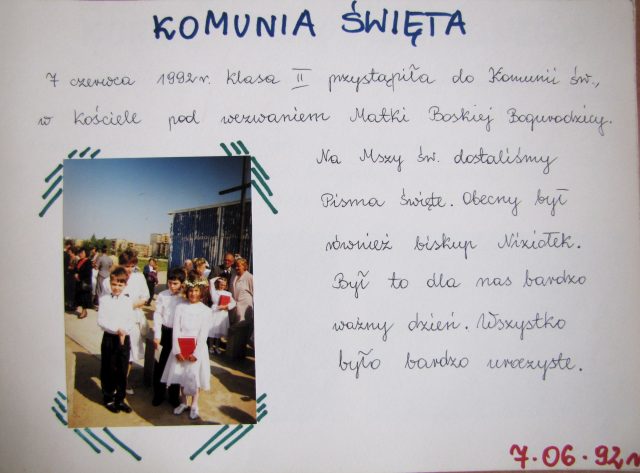 KOMUNIA ŚWIĘTA
7 czerwca 1992 r. klasa II przystąpiła do Komunii św.,
w Kościele pod wezwaniem Matki Boskiej Bogurodzicy.
Na Mszy św. dostaliśmy
Pisma święte. Obecny był
również biskup Niziołek.
Był to dla nas bardzo
ważny dzień. Wszystko
było bardzo uroczyste.
7.06.92r